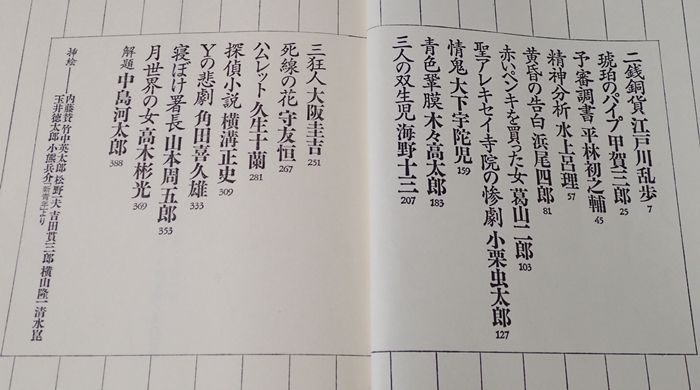 二銭銅貨 江戸川乱歩 7
琥珀のパイプ 甲賀三郎 25
予審調書 平林初之輔 45
精神分析 水上呂理 57
黄昏の告白 浜尾四郎 81
赤いペンキを買った女 葛山二郎 103
聖アレキセイ寺院の惨劇 小栗虫太郎 127
情鬼 大下宇陀児 159
青色鞏膜 木々高太郎 183
三人の双生児 海野十三 207
三狂人 大阪圭吉 251
死線の花 守友恒 267
ハムレット 久生十蘭 281
探偵小説 横溝正史 309
Yの悲劇 角田喜久雄 333
寝ぼけ署長 山本周五郎 353
月世界の女 高木彬光 369
解題 中島河太郎 388
挿絵――内藤賛 竹中英太郎 松野一夫 吉田貫三郎 横山隆一 清水崑
玉井徳太郎 小熊兵介 「新青年」より